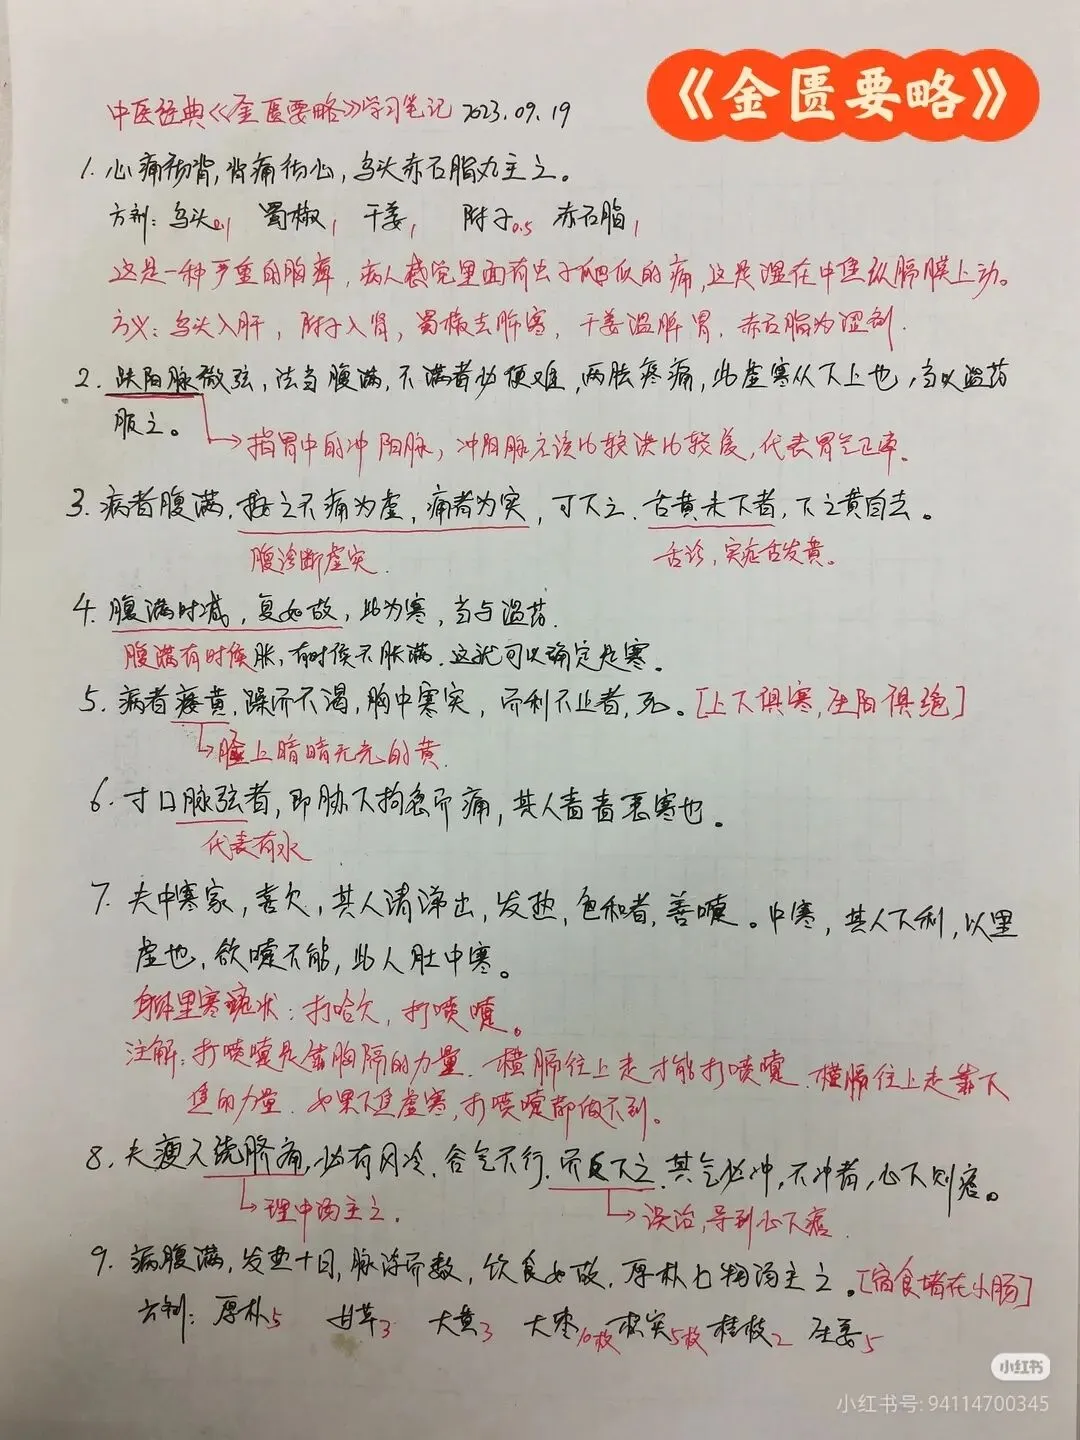 《金匮要略》
中医经典《金匮要略》学习笔记 2023.09.19
1. 心痛彻背,背痛彻心,乌头赤石脂丸主之。
方剂: 乌头0.1 蜀椒1 干姜1 附子0.5 赤石脂1
这是一种严重的胸痹,病人感觉里面有虫子爬似的痛,这是湿在中焦纵膈膜上动。
方义: 乌头入肝,附子入肾,蜀椒去肺寒,干姜温脾胃,赤石脂为涩剂.
2. 趺阳脉微弦,法当腹满,不满者必便难,两胠疼痛,此虚寒从下上也,当以温药
服之。
指胃中的冲阳脉,冲阳脉应该比较洪比较缓,代表胃气正常.
3. 病者腹满,按之不痛为虚,痛者为实,可下之.舌黄未下者,下之黄自去。
腹诊断虚实.
舌诊,实症舌发黄。
4. 腹满时减,复如故,此为寒,当与温药.
腹满有时候胀,有时候不胀满.这就可以确定是寒。
5. 病者痿黄,躁而不渴,胸中寒实,而利不止者,死。[上下俱寒,阴阳俱绝]
脸上暗暗无光的黄.
6. 寸口脉弦者,即胁下拘急而痛,其人啬啬恶寒也。
代表有水
7. 夫中寒家,喜欠,其人清涕出,发热,色和者,善嚏。中寒,其人下利,以里
虚也,欲嚏不能,此人肚中寒。
身体里寒症状: 打哈欠,打喷嚏。
注解: 打喷嚏是靠胸膈的力量.横膈往上走才能打喷嚏.横膈往上走靠下
焦的力量.如果下焦虚寒,打喷嚏都做不到。
8. 夫瘦人绕脐痛,必有风冷.谷气不行.而反下之.其气必冲,不冲者,心下则痞。
理中汤主之.
误治,导致心下痞
9. 病腹满,发热十日,脉浮而数,饮食如故,厚朴七物汤主之。[宿食堵在小肠]
方剂: 厚朴5 甘草3 大黄3 大枣10枚 枳实5枚 桂枝2 生姜5
小红书
小红书号: 94114700345